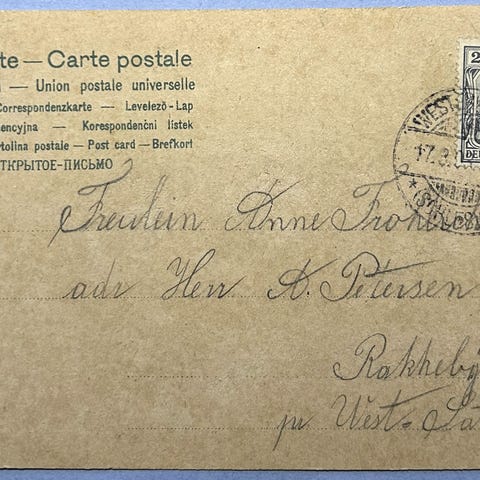 te — Carte postale
— Union postale universelle
Correspondenzkarte — Levelező-Lap
encyjna — Korespondenční lístek
rtolina postale — Post card — Brefkort
ТКРЫТОЕ-ПИСЬМО
2
WEST
DE
17.3.
Freulein Anne
adr Herr A. Petersen
Rakkeby
pr West-Sa